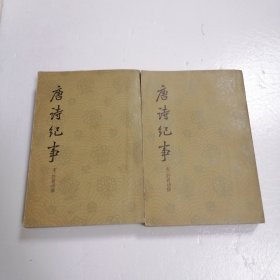 唐诗纪事
唐诗纪事